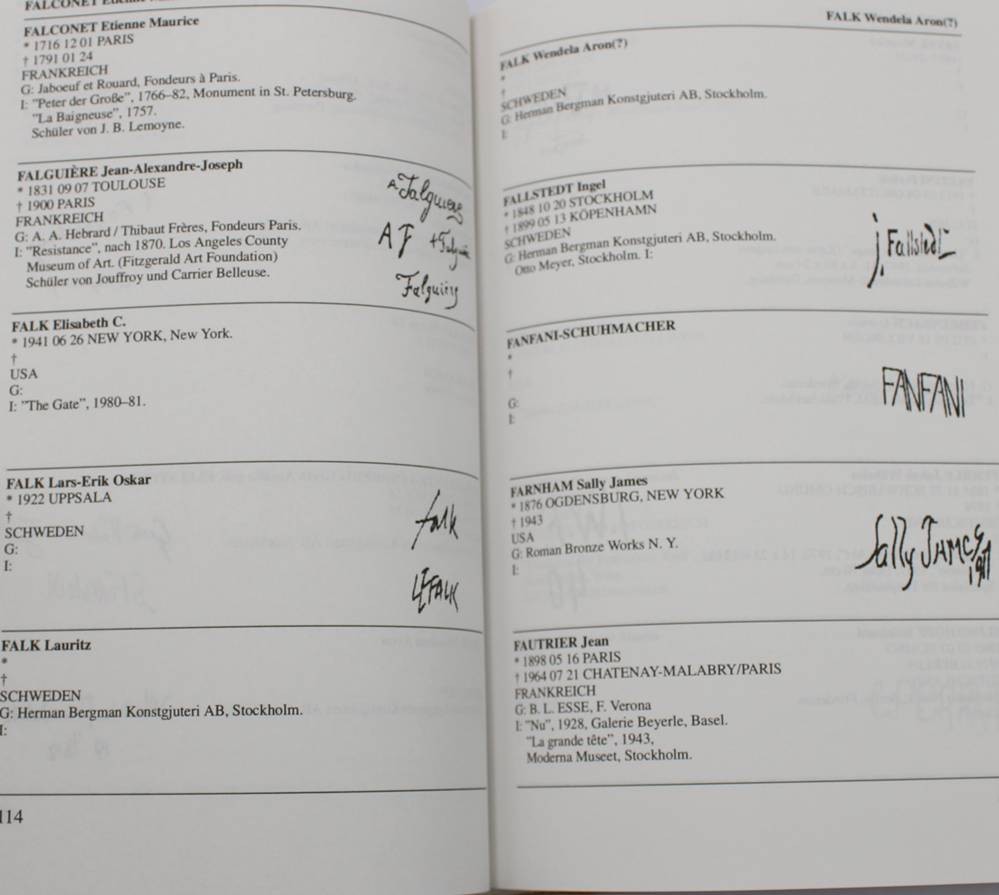 FALCONET Etienne Maurice
* 1716 12 01 PARIS
† 1791 01 24
FRANKREICH
G: Jaboeuf et Rouard, Fondeurs à Paris.
I: "Peter der Große", 1766–82, Monument in St. Petersburg.
"La Baigneuse", 1757.
Schüler von J. B. Lemoyne.
FALGUIÈRE Jean-Alexandre-Joseph
* 1831 09 07 TOULOUSE
† 1900 PARIS
FRANKREICH
G: A. A. Hebrard / Thibaut Frères, Fondeurs Paris.
I: "Resistance", nach 1870. Los Angeles County
Museum of Art. (Fitzgerald Art Foundation)
Schüler von Jouffroy und Carrier Belleuse.
A Falguière
AF
Falguière
FALK Elisabeth C.
* 1941 06 26 NEW YORK, New York.
†
USA
G:
I: "The Gate", 1980–81.
FALK Lars-Erik Oskar
* 1922 UPPSALA
†
SCHWEDEN
G:
I:
falk
LEFALK
FALK Lauritz
*
†
SCHWEDEN
G: Herman Bergman Konstgjuteri AB, Stockholm.
I:
114
FALK Wendela Aron(?)
FALK Wendela Aron(?)
*
†
SCHWEDEN
G: Herman Bergman Konstgjuteri AB, Stockholm.
I:
FALLSTEDT Ingel
* 1848 10 20 STOCKHOLM
† 1899 05 13 KÖPENHAMN
SCHWEDEN
G: Herman Bergman Konstgjuteri AB, Stockholm.
Otto Meyer, Stockholm. I:
j. Fallstedt
FANFANI-SCHUHMACHER
*
†
G:
I:
FANFANI
FARNHAM Sally James
* 1876 OGDENSBURG, NEW YORK
† 1943
USA
G: Roman Bronze Works N. Y.
I:
Sally JAMES
FAUTRIER Jean
* 1898 05 16 PARIS
† 1964 07 21 CHATENAY-MALABRY/PARIS
FRANKREICH
G: B. L. ESSE, F. Verona
I: "Nu", 1928, Galerie Beyerle, Basel.
"La grande tête", 1943,
Moderna Museet, Stockholm.